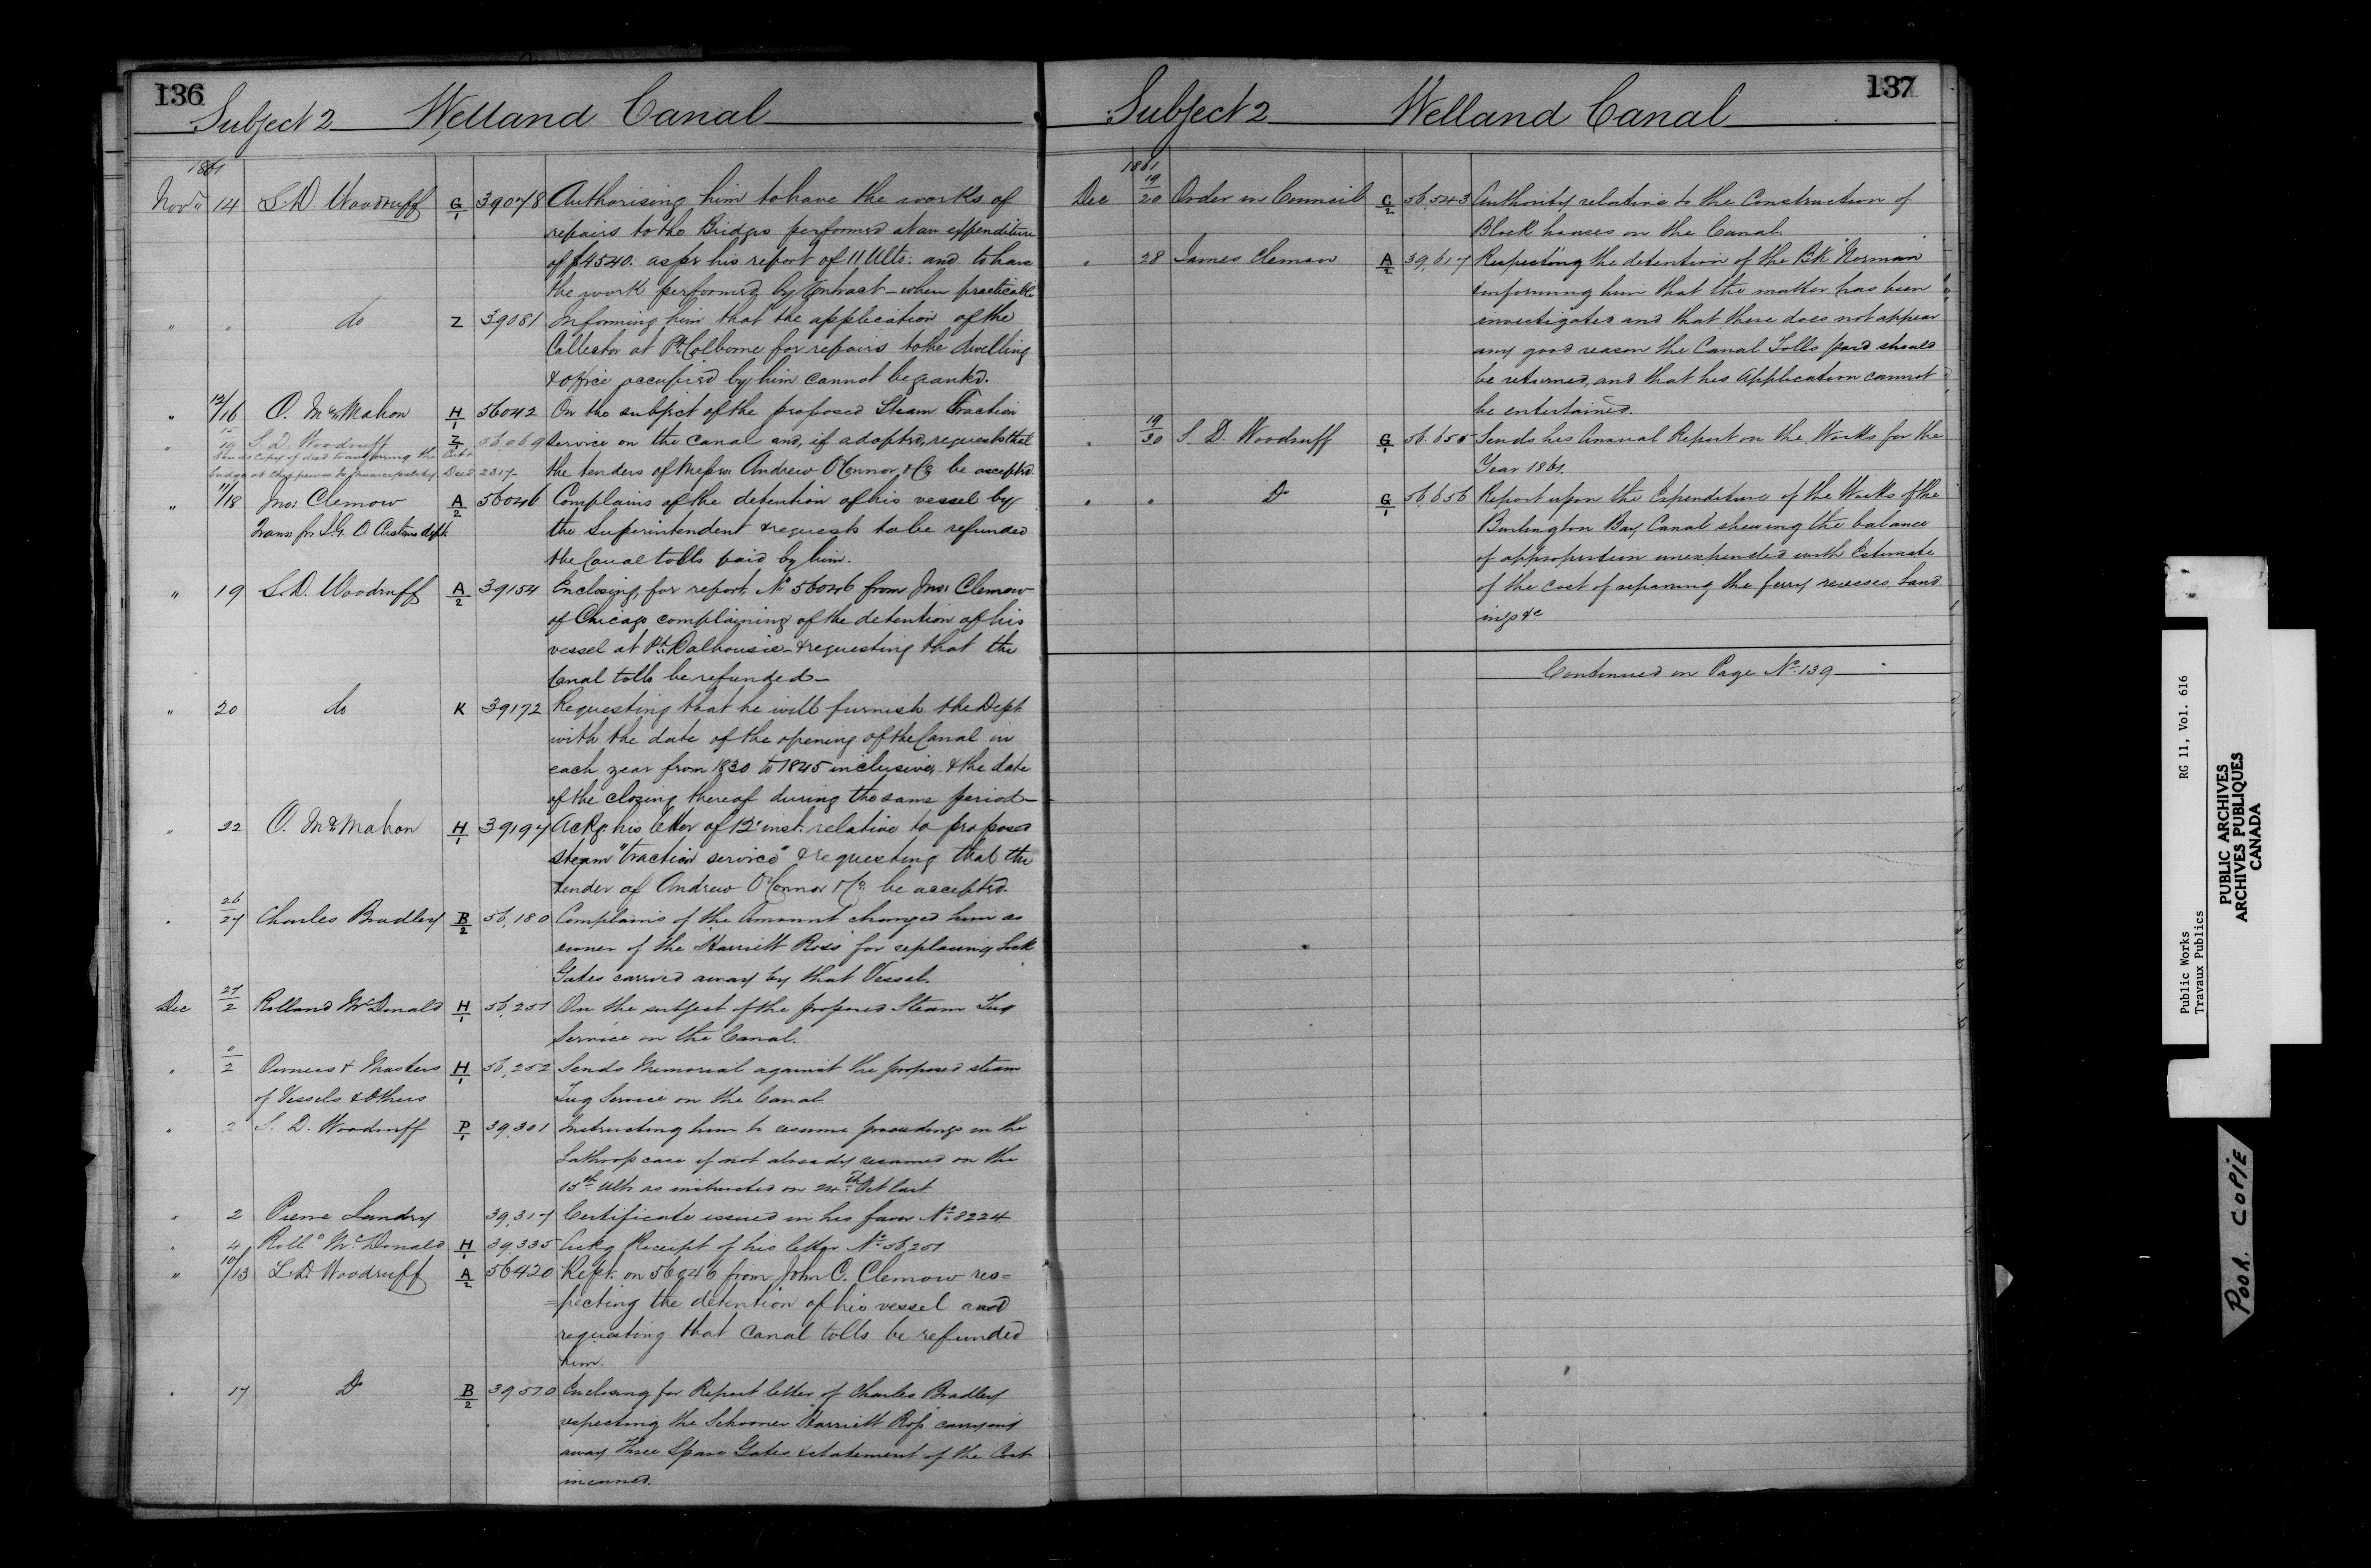 136
Subject 2 Welland Canal
1861
Novr 14 S.D. Woodruff G/1 39078 Authorising him to have the works of
repairs to the Bridges performed at an expenditure
of $4540. as per his report of 11 Ulto: and to have
the work performed by Contract - when practicable
" " do Z 39081 Informing him that the application of the
Collector at Pt. Colborne for repairs to the dwelling
& office occupied by him cannot be granted.
" 12/16 O. McMahon H/1 56042 On the subject of the proposed Steam Traction
Service on the Canal and, if adopted, requests that
the tenders of Messrs Andrew O'Connor & Co be accepted.
" 15/19 S. D. Woodruff Z/1 56,069
Sends Copy of deed transferring the
bridge at Chippewa to Municipality Deed 2317
" 11/18 Jno: Clemow A/2 56046 Complains of the detention of his vessel by
Trans. fr I. G. O. Customs Dept. the Superintendent & requests to be refunded
the Canal tolls paid by him.
" 19 S.D. Woodruff A/2 39154 Enclosing, for report, No 56046 from Jno: Clemow
of Chicago complaining of the detention of his
vessel at Pt. Dalhousie - & requesting that the
Canal tolls be refunded -
" 20 do K 39172 Requesting that he will furnish the Dept.
with the date of the opening of the Canal in
each year from 1830 to 1845 inclusive, & the date
of the closing thereof during the same period -
" 22 O. McMahon H/1 39197 Ackg. his letter of 12 inst. relative to proposed
steam "traction service" & requesting that the
tender of Andrew O'Connor & Co. be accepted.
" 26/27 Charles Bradley B/2 56,180 Complains of the Amount charged him as
owner of the "Harriett Ross" for replacing Lock
Gates carried away by that Vessel.
Dec 27/2 Rolland McDonald H/1 56,251 On the subject of the proposed Steam Tug
Service on the Canal.
" "/2 Owners & Masters H/1 56,252 Sends Memorial against the proposed steam
of Vessels & Others Tug Service on the Canal
" 2 S. D. Woodruff P/1 39,301 Instructing him to resume proceedings in the
Lathrop case if not already resumed on the
15th Ulto as instructed on 24th Oct last
" 2 Pierre Landry 39,317 Certificate issued in his favor No. 8224
" 4 Rolld McDonald H/1 39,335 Ackg Receipt of his letter No. 56,251
" 10/13 S.D. Woodruff A/2 56420 Rept. on 56046 from John C. Clemow res=
=pecting the detention of his vessel and
requesting that Canal tolls be refunded
him.
" 17 Do B/2 39510 Enclosing for Report letter of Charles Bradley
respecting the Schooner "Harriett Ross" carrying
away three Spare Gates & statement of the Cost
incurred.
137
Subject 2 Welland Canal
1861
Dec 19/20 Order in Council C/2 56,543 Authority relative to the Construction of
Block houses on the Canal.
" 28 James Clemow A/2 39,617 Respecting the detention of the Bk "Norman"
& informing him that the matter has been
investigated and that there does not appear
any good reason the Canal Tolls paid should
be returned, and that his Application cannot
be entertained.
" 19/30 S. D. Woodruff G/1 56,655 Sends his Annual Report on the Works for the
Year 1861.
" " Do G/1 56,656 Report upon the Expenditure of the Works of the
Burlington Bay Canal shewing the balance
of appropriation unexpended with Estimate
of the cost of repairing the ferry recesses Land
ings &c
Continued on Page No. 139
Public Works RG 11, Vol. 616
Travaux Publics
PUBLIC ARCHIVES
ARCHIVES PUBLIQUES
CANADA
POOR COPIE